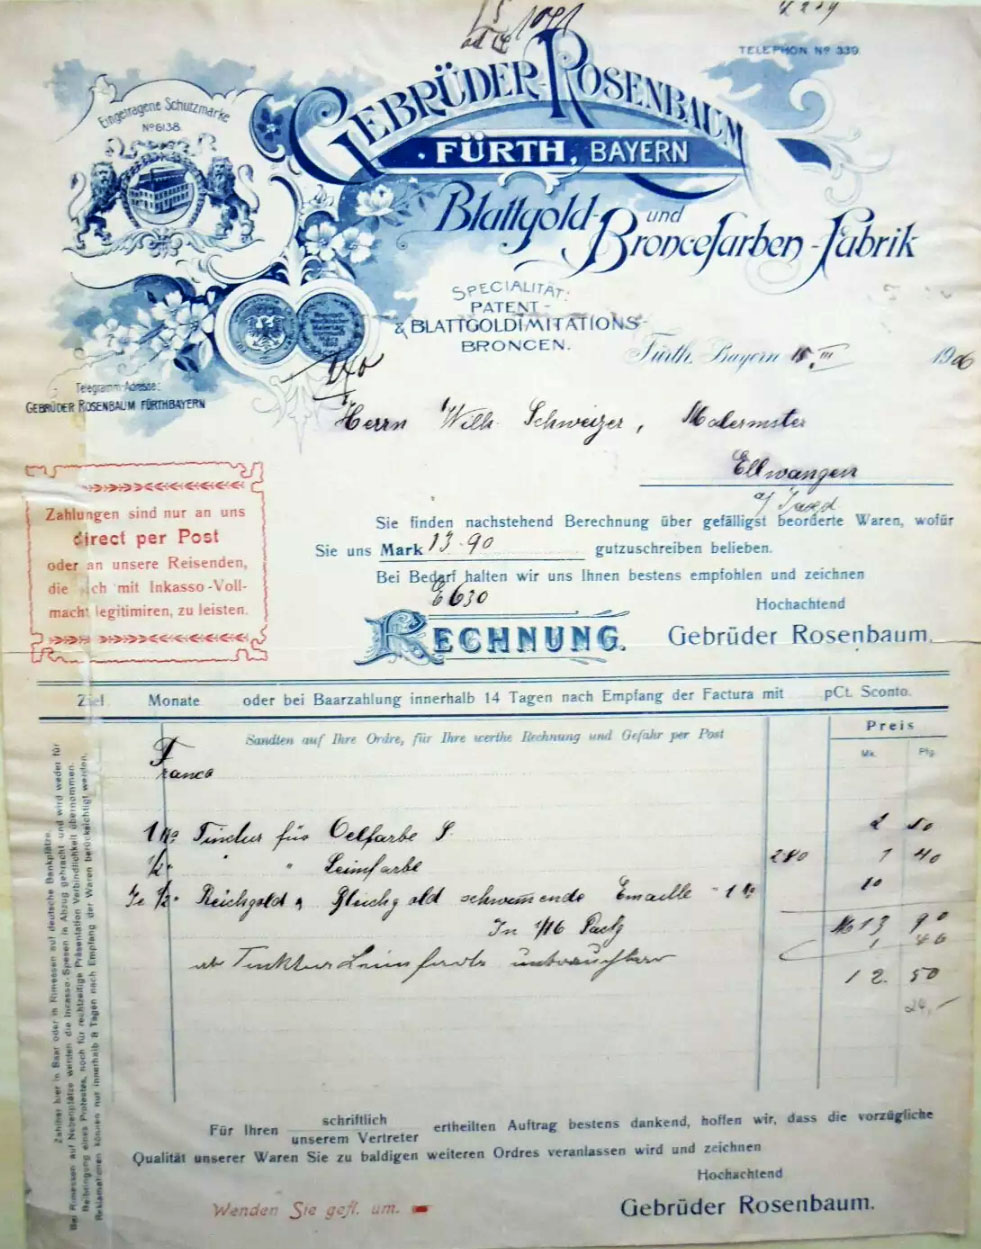 TELEPHON Nº 339
Eingetragene Schutzmarke
Nº 6138.
GEBRÜDER ROSENBAUM
FÜRTH, BAYERN
Blattgold- und
Broncefarben-Fabrik
SPECIALITÄT:
PATENT-
& BLATTGOLDIMITATIONS-
BRONCEN.
Fürth, Bayern 15. III 1906
Telegramm-Adresse:
GEBRÜDER ROSENBAUM FÜRTHBAYERN
Herrn Wilh. Schweizer, Malermster
Ellwangen
a/ Jagd
Zahlungen sind nur an uns
direct per Post
oder an unsere Reisenden,
die sich mit Inkasso-Voll-
macht legitimiren, zu leisten.
Sie finden nachstehend Berechnung über gefälligst beorderte Waren, wofür
Sie uns Mark 13.90 gutzuschreiben belieben.
Bei Bedarf halten wir uns Ihnen bestens empfohlen und zeichnen
E 630
Hochachtend
RECHNUNG.
Gebrüder Rosenbaum.
Ziel Monate oder bei Baarzahlung innerhalb 14 Tagen nach Empfang der Factura mit pCt. Sconto.
Sandten auf Ihre Ordre, für Ihre werthe Rechnung und Gefahr per Post
Preis
Mk. Pfg.
Franco
1 Ko Tinctur für Oelfarbe 2 50
1/2 " " Leimfarbe 280 1 40
Je 1/2 " Reichgold & Gleichgold schwemende Emaille 10
In 1/16 Pack M 13 90
ab Tinktur Leimfarbe unbrauchbar 1 40
12.50
Für Ihren schriftlich
unserem Vertreter ertheilten Auftrag bestens dankend, hoffen wir, dass die vorzügliche
Qualität unserer Waren Sie zu baldigen weiteren Ordres veranlassen wird und zeichnen
Hochachtend
Gebrüder Rosenbaum.
Wenden Sie gefl. um.
Zahlbar hier in Baar oder in Rimessen auf deutsche Bankplätze.
Bei Rimessen auf Nebenplätze werden die Incasso-Spesen in Abzug gebracht und wird weder für
Beibringung eines Protestes, noch für rechtzeitige Präsentation Verbindlichkeit übernommen.
Reklamationen können nur innerhalb 8 Tagen nach Empfang der Waren berücksichtigt werden.